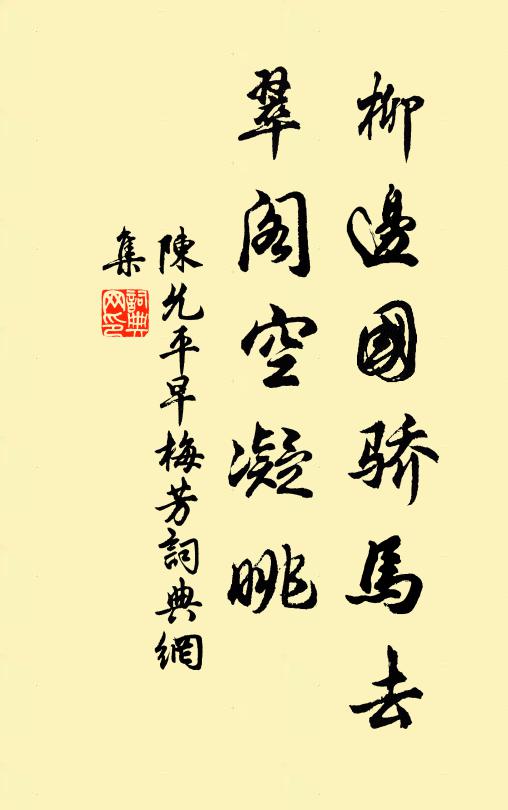 柳邊國驕馬去
翠阁空凝眺
陳允平早梅芳詞典網
集
詞典
网印